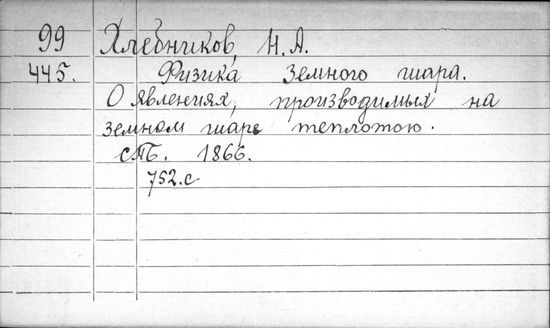 99 Хлебников, Н.А.
445. Физика земного шара.
О явлениях, производимых на
земном шаре теплотою.
СПб. 1866.
752.с